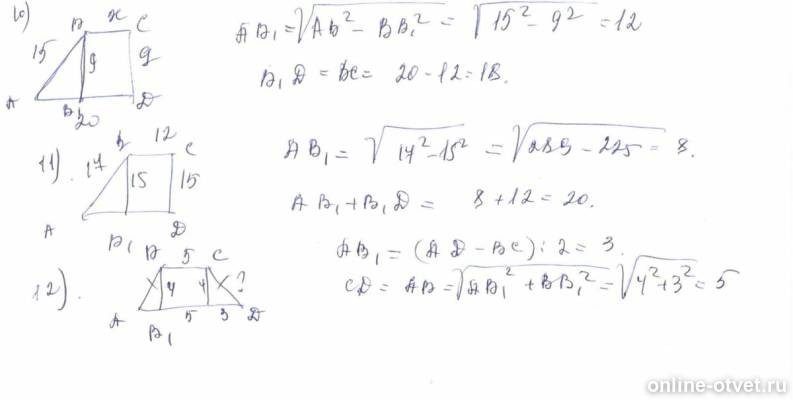 10)
B x C
15 9 9
A B₁ D
20
AB₁ = √AB² − BB₁² = √15² − 9² = 12
B₁D = BC = 20 − 12 = 18.
11).
B 12 C
17 15 15
A B₁ D
AB₁ = √17² − 15² = √289 − 225 = 8.
AB₁ + B₁D = 8 + 12 = 20.
12).
B 5 C
x 4 4 x ?
A B₁ 5 3 D
AB₁ = (AD − BC) : 2 = 3.
CD = AB = √AB₁² + BB₁² = √4² + 3² = 5
online-otvet.ru